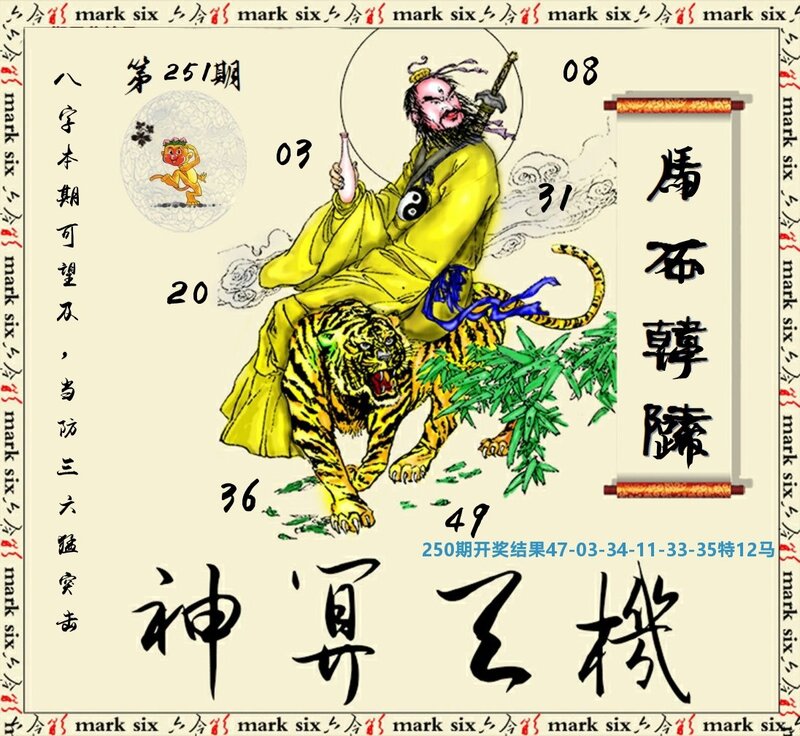 mark six 六合彩 mark six 六合彩 mark six 六合彩 mark six 六合彩 mark six
第251期
八字本期可望及，当防三六猛突击
08
03
31
20
36
49
馬石韓陵
250期开奖结果47-03-34-11-33-35特12马
神算天機
mark six
mark six
mark six
mark six
mark six
mark six
mark six
mark six
mark six 六合彩 mark six 六合彩 mark six 六合彩 mark six 六合彩 mark six